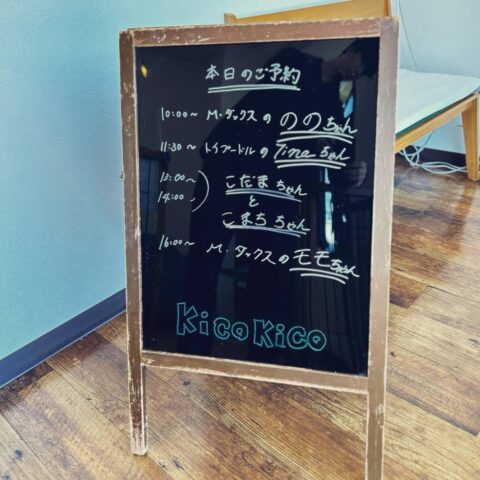 本日のご予約
10:00〜 M・ダックスの ののちゃん
11:30〜 トイプードルの Tinaちゃん
13:00〜 こだまちゃん
と
14:00 こまちちゃん
16:00〜 M・ダックスの モモちゃん
KicoKico